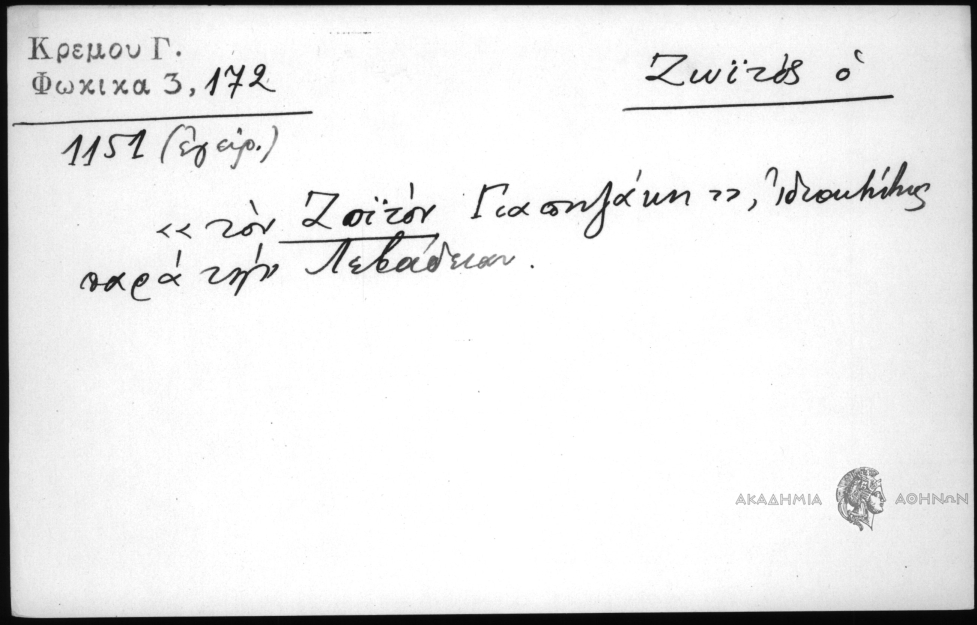 Κρεμου Γ.
Φωκικα 3, 172
Ζωϊτός ὁ
1151 (ἐγειρ.)
«τὸν Ζοϊτὸν Γιαπηλάκη», ἰδιοκτήτης
παρὰ τὴν Λεβάδειαν.
ΑΚΑΔΗΜΙΑ ΑΘΗΝΩΝ